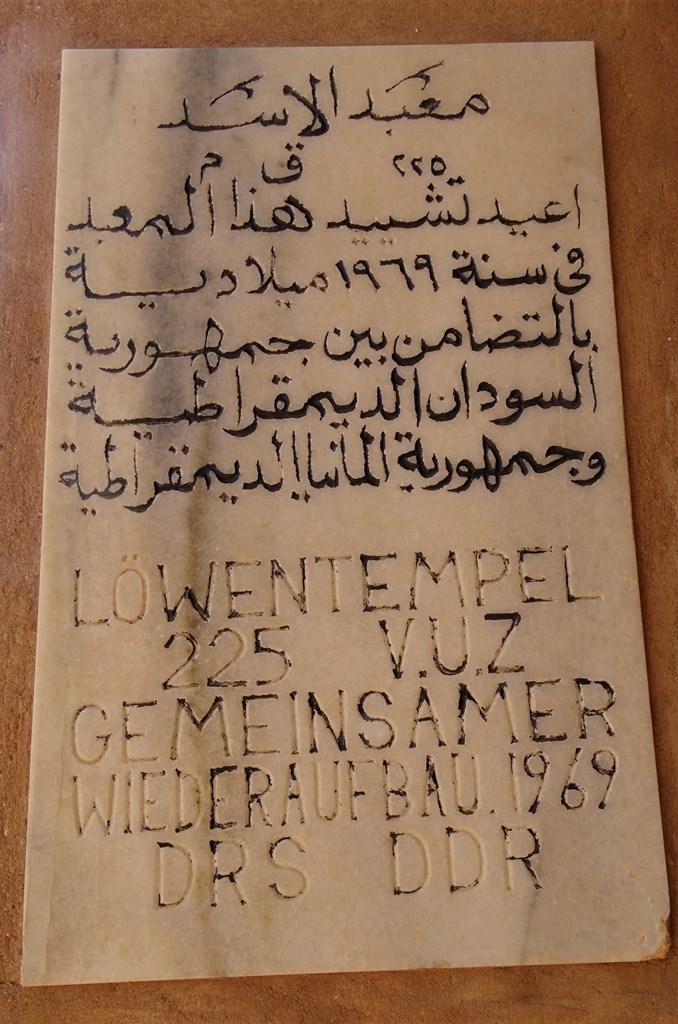 معبد الاسد
٢٢٥ ق م
اعيد تشييد هذا المعبد
فى سنة ١٩٦٩ ميلادية
بالتضامن بين جمهورية
السودان الديمقراطية
وجمهورية المانيا الديمقراطية
LÖWENTEMPEL
225 V.U.Z
GEMEINSAMER
WIEDERAUFBAU.1969
DRS DDR